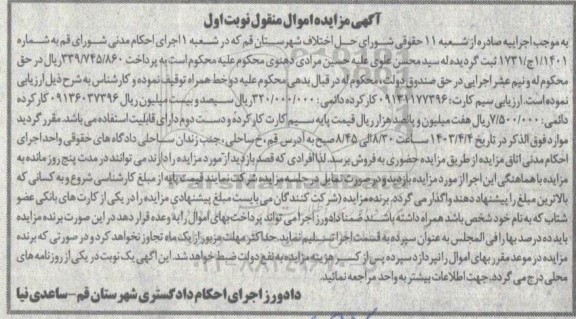 آگهی مزایده اموال منقول نوبت اول
به موجب اجراییه صادره از شعبه ۱۱ حقوقی شورای حل اختلاف شهرستان قم که در شعبه ۱ اجرای احکام مدنی شورای قم به شماره
۱۴۰۱/ج۱/۱۷۳۱ ثبت گردیده له سید محسن علوی علیه حسین مرادی دهنوی محکوم علیه محکوم است به پرداخت ۳۳۹/۷۴۵/۸۶۰ ریال در حق
محکوم له و نیم عشر اجرایی در حق صندوق دولت، محکوم له در قبال بدهی محکوم علیه دو خط همراه توقیف نموده و کارشناس به شرح ذیل ارزیابی
نموده است. ارزیابی سیم کارت: ۰۹۱۳۱۱۷۷۳۹۶ کارکرده دائمی: ۳۲۰/۰۰۰/۰۰۰ ریال سیصد و بیست میلیون ریال ۰۹۱۳۶۰۳۷۳۹۶ کارکرده
دائمی: ۷/۵۰۰/۰۰۰ ریال هفت میلیون و پانصد هزار ریال قیمت پایه سیم کارت کارکرده و دست دوم دارای قابلیت استفاده می باشد. مقرر گردید
موارد فوق الذکر در تاریخ ۱۴۰۳/۴/۴ ساعت ۸/۳۰ الی ۸/۴۵ صبح به آدرس قم، خ ساحلی، جنب زندان ساحلی دادگاه های حقوقی واحد اجرای
احکام مدنی اتاق مزایده از طریق مزایده حضوری به فروش برسد. لذا افرادی که قصد بازدید از مورد مزایده را دارند می توانند در مدت پنج روز مانده به
مزایده با هماهنگی این اجرا از مورد مزایده بازدید و در صورت تمایل در جلسه مزایده شرکت نمایند قیمت پایه از مبلغ کارشناسی شروع و به کسانی که
بالاترین مبلغ را پیشنهاد دهند واگذار می گردد. برنده مزایده (شرکت کنندگان می بایست مبلغ پیشنهادی مزایده را در یکی از کارت های بانکی عضو
شتاب که به نام خود شخص باشد همراه داشته باشند ضمنا دادورز اجرا می تواند پرداخت بهای اموال را به وعده قرار دهد در این صورت برنده مزایده
باید ده درصد بها را فی المجلس به عنوان سپرده به قسمت اجرا تسلیم نماید حداکثر مهلت مزبور از یک ماه تجاوز نخواهد کرد و در صورتی که برنده
مزایده در موعد مقرر بهای اموال را نپردازد سپرده پس از کسر هزینه مزایده به نفع دولت ضبط خواهد شد. این آگهی یک نوبت در یکی از روزنامه های
محلی درج می گردد، جهت اطلاعات بیشتر به واحد مراجعه نمائید.
دادورز اجرای احکام دادگستری شهرستان قم - ساعدی نیا